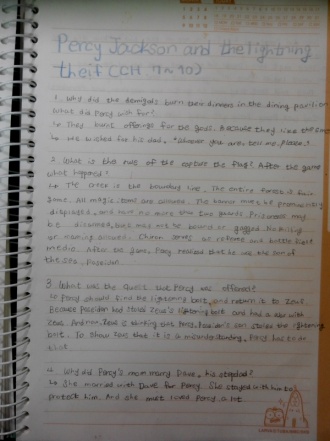 Percy Jackson and the lightning
theif (CH. 7 - 10)
1. Why did the demigods burn their dinners in the dining pavilion
What did Percy wish for?
↳ They burnt offerings for the gods. Because they like the
↳ He wished for his dad, "Whoever you are, tell me, please."
2. What is the rule of the capture the flag? After the game
what happened?
↳ The creek is the boundary line. The entire forest is fair
game. All magic items are allowed. The banner must be prominently
displayed, and have no more than two guards. Prisoners may
be disarmed, but may not be bound or gagged. No killing
or maiming allowed. Chiron serves as referee and battlefield
medic. After the game, Percy realized that he was the son of
the sea, Poseidon.
3. What was the quest that Percy was offered?
↳ Percy should find the lightening bolt, and return it to Zeus.
Because Poseidon had stolen Zeus's lightening bolt and had a war with
Zeus. And now, Zeus is thinking that Percy, Poseidon's son stole the lightening
bolt. To show that it is a misunderstanding, Percy has to do
this.
4. Why did Percy's mom marry Dave, his stepdad?
↳ She married with Dave for Percy. She stayed with him to
protect him. And she must loved Percy a lot.